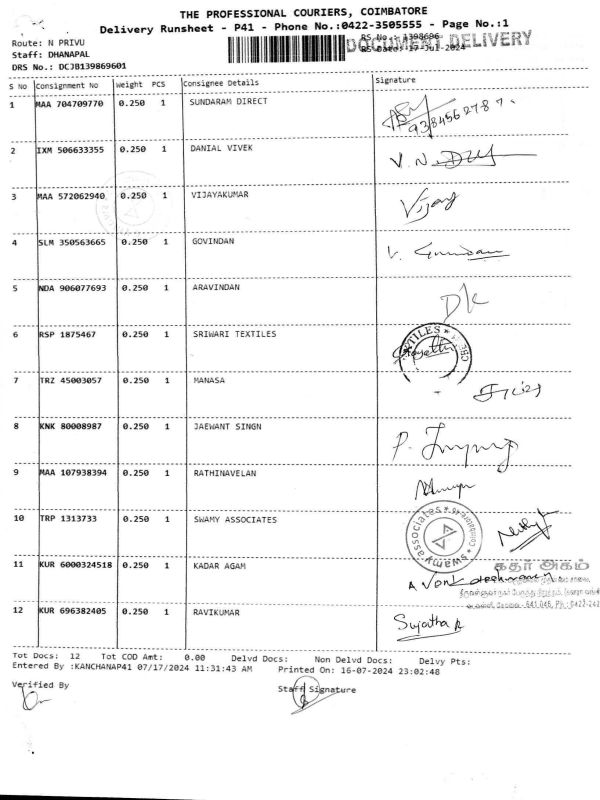 THE PROFESSIONAL COURIERS, COIMBATORE
Delivery Runsheet - P41 - Phone No.:0422-3505555 - Page No.:1
DOCUMENT DELIVERY
Route: N PRIVU RS No.: 1398696
Staff: DHANAPAL RS Date: 17-Jul-2024
DRS No.: DCJB139869601
S No Consignment No Weight PCS Consignee Details Signature
1 MAA 704709770 0.250 1 SUNDARAM DIRECT
9384562787
2 IXM 506633355 0.250 1 DANIAL VIVEK
3 MAA 572062940 0.250 1 VIJAYAKUMAR Vijay
4 SLM 350563665 0.250 1 GOVINDAN
5 NDA 906077693 0.250 1 ARAVINDAN
6 RSP 1875467 0.250 1 SRIWARI TEXTILES
7 TRZ 45003057 0.250 1 MANASA
8 KNK 80008987 0.250 1 JAEWANT SINGN
9 MAA 107938394 0.250 1 RATHINAVELAN
10 TRP 1313733 0.250 1 SWAMY ASSOCIATES
swamy associates * Coimbatore *
11 KUR 6000324518 0.250 1 KADAR AGAM
கதர் அகம்
641 046, Ph : 0422-242
12 KUR 696382405 0.250 1 RAVIKUMAR Sujatha R
Tot Docs: 12 Tot COD Amt: 0.00 Delvd Docs: Non Delvd Docs: Delvy Pts:
Entered By :KANCHANAP41 07/17/2024 11:31:43 AM Printed On: 16-07-2024 23:02:48
Verified By Staff Signature